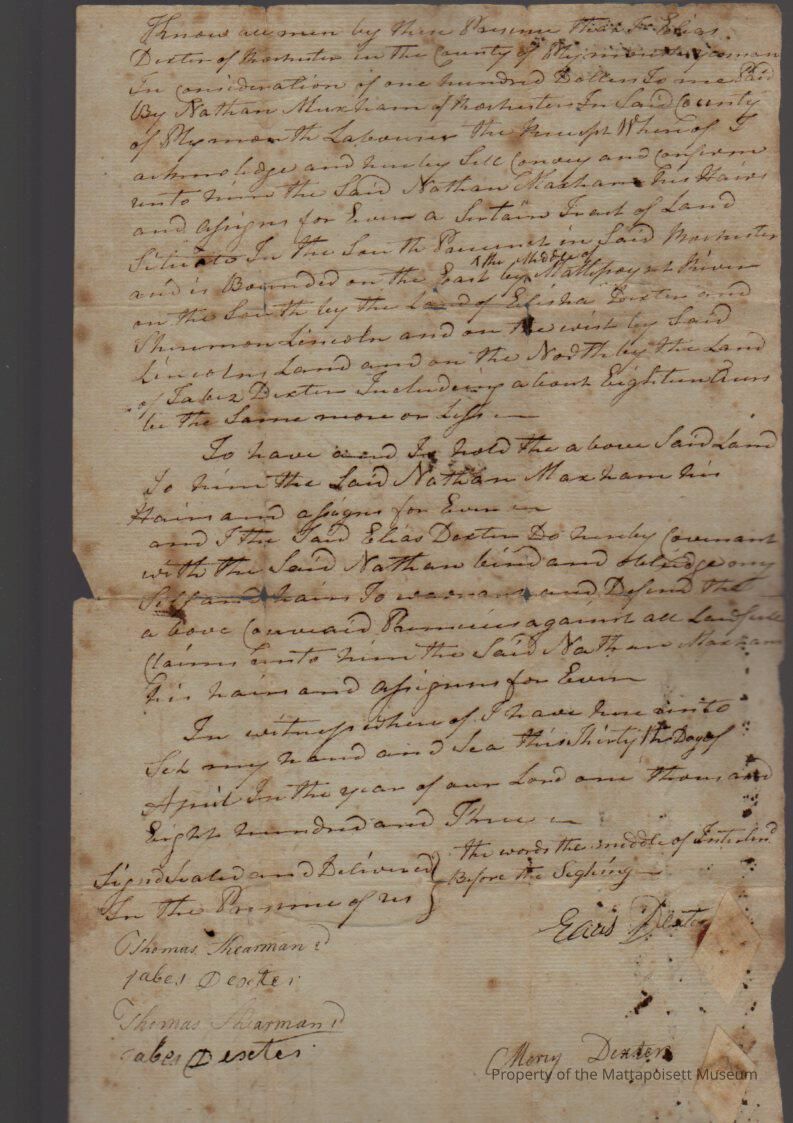 Know all men by these Presents that I Elias
Dexter of Rochester in the County of Plymouth yeoman
In consideration of one hundred Dollers To me Paid
By Nathan Maxham of Rochester In Said County
of Plymouth Labourer the Receipt Where of I
acknoledge and hereby Sell Convey and Confirm
unto him the Said Nathan Maxham his Hairs
and assigns for Ever a Sertain Tract of Land
Situate In the South Precinct in Said Rochester
and is Bounded on the East by ^the Middle of Mattepoysett River
on the South by the Land of Elisha Dexter and
Sheremon Lincoln and on the west by Said
Lincolns Land and on the North by the Land
of Jabez Dexter Includeing about Eighteen Acres
be the Same more or Less
To have and To hold the above Said Land
To him the Said Nathan Maxham his
Hairs and assigns for Ever
and I the Said Elias Dexter Do hereby Covenant
with the Said Nathan bind and obledge my
Self and hairs To warrant and Defend the
above Conveaid Premicies against all Lawfull
Claims unto him the Said Nathan Maxham
his hairs and assignns for Ever
In witness where of I have here unto
Set my hand and Sea this thirtyth Day of
April In the year of our Lord one thousand
Eight hundred and Three
Signd Sealed and Delivered } the words the middle of Interlind
In the Presence of us } Before the Sighing
Elias Dexter
Thomas Shearman
Jabez Dexter
Thomas Shearman
Jabez Dexter
Mercy Dexter
Property of the Mattapoisett Museum